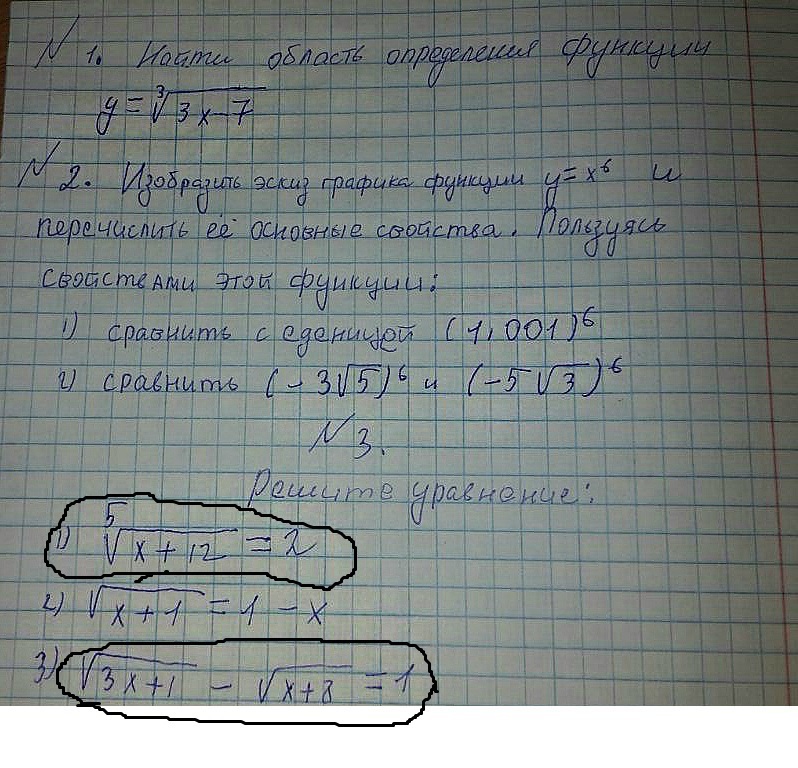 N 1. Найти область определения функции
y = ∛(3x-7)
N 2. Изобразить эскиз графика функции y = x⁶ и
перечислить её основные свойства. Пользуясь
свойствами этой функции:
1) сравнить с еденицей (1,001)⁶
2) сравнить (-3√5)⁶ и (-5√3)⁶
N 3.
Решите уравнение:
1) ⁵√(x+12) = 2
2) √(x+1) = 1 - x
3) √(3x+1) - √(x+8) = 1